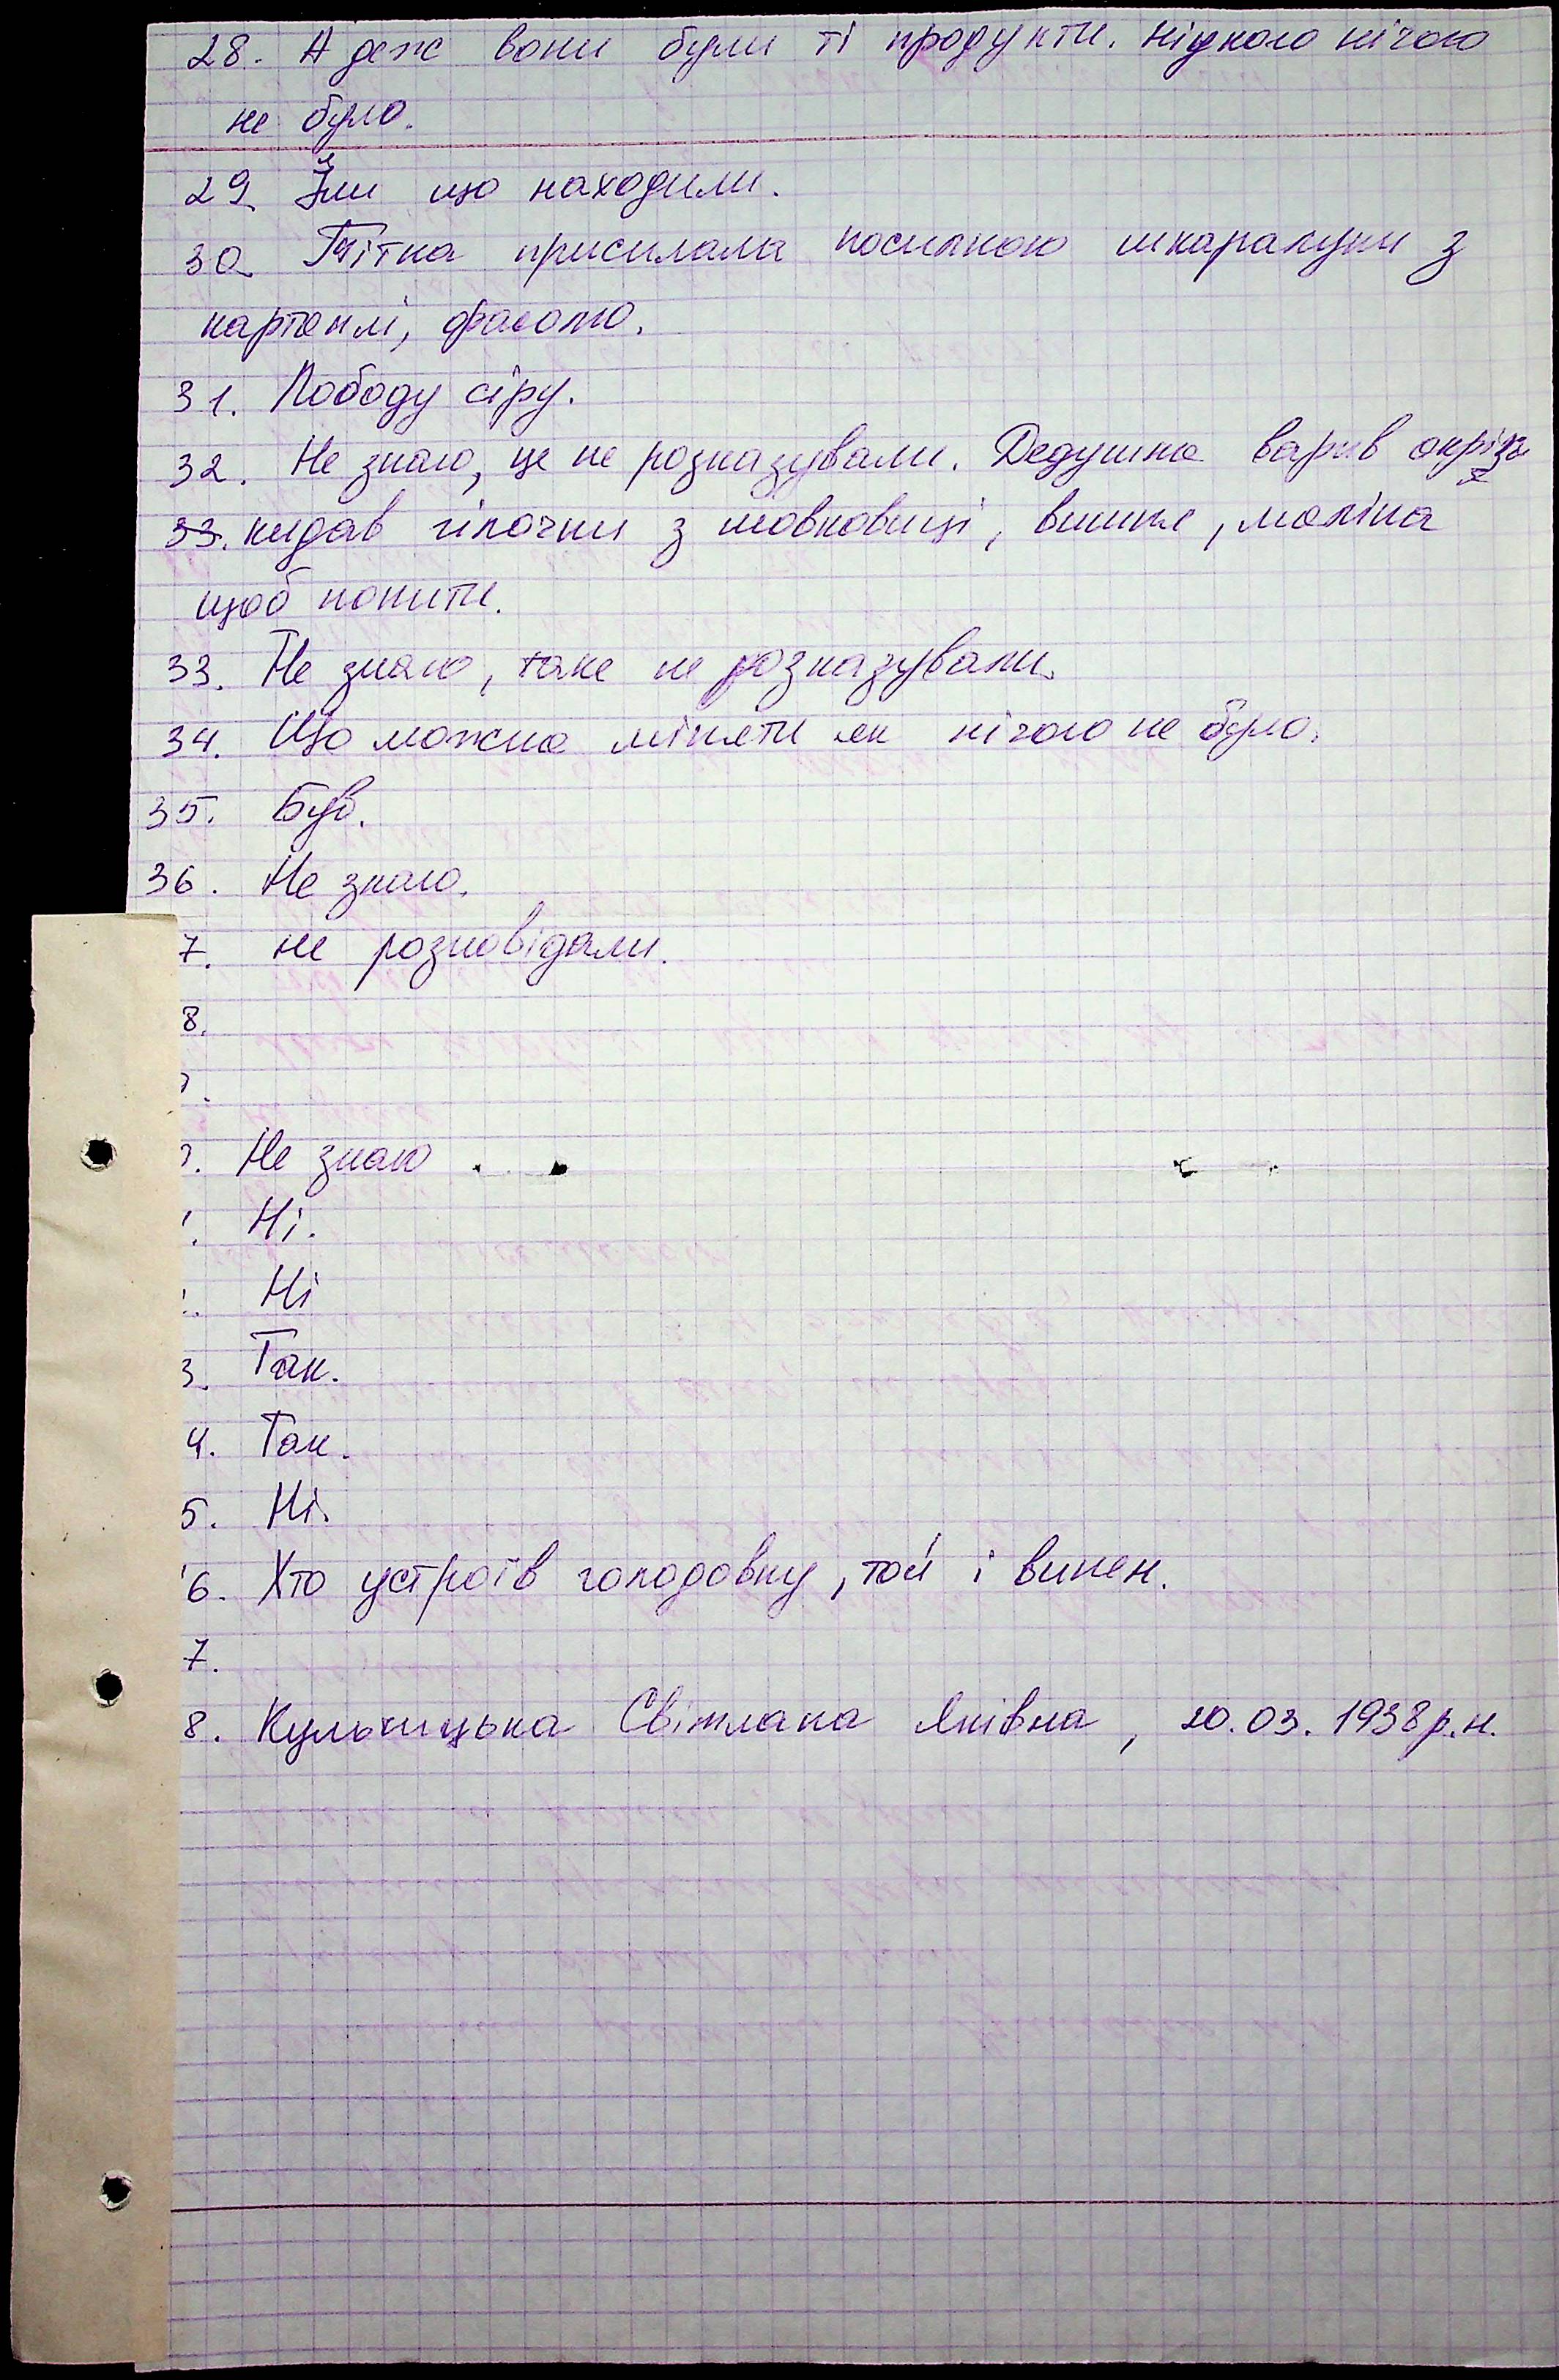 28. А деж вони були ті продукти. Нідкого нічого
не було.
29. Їли що находили.
30. Тітка присилала посилкою шкаралупи з
картоплі, фасолю.
31. Лободу сіру.
32. Не знаю, це не розказували. Дедушка варив окріп
33. кидав гілочки з шовковиці, вишні, маліна
щоб попити.
33. Не знаю, таке не розказували.
34. Що можна міняти як нічого не було.
35. Був.
36. Не знаю.
7. не розповідали.
8.
9.
0. Не знаю
1. Ні.
2. Ні
3. Так.
4. Так.
5. Ні.
6. Хто устроїв голодовку, той і винен.
7.
8. Кульчицька Світлана Яківна, 20.03.1938 р.н.